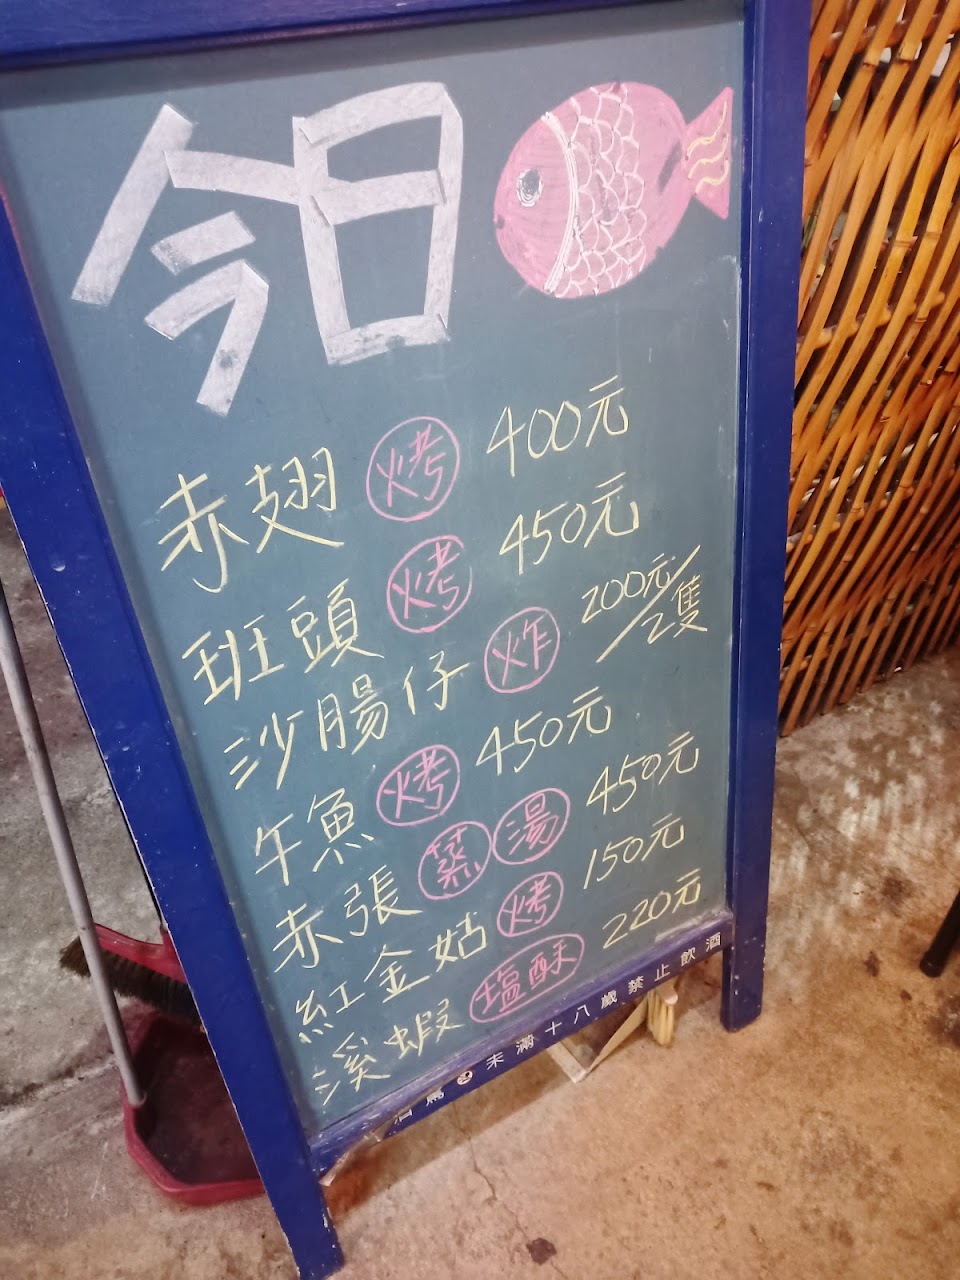 今日
赤翅 烤 400元
班頭 烤 450元
沙腸仔 炸 200元/2隻
午魚 烤 450元
赤張 蒸 湯 450元
紅金姑 烤 150元
溪蝦 塩酥 220元
未滿十八歲禁止飲酒